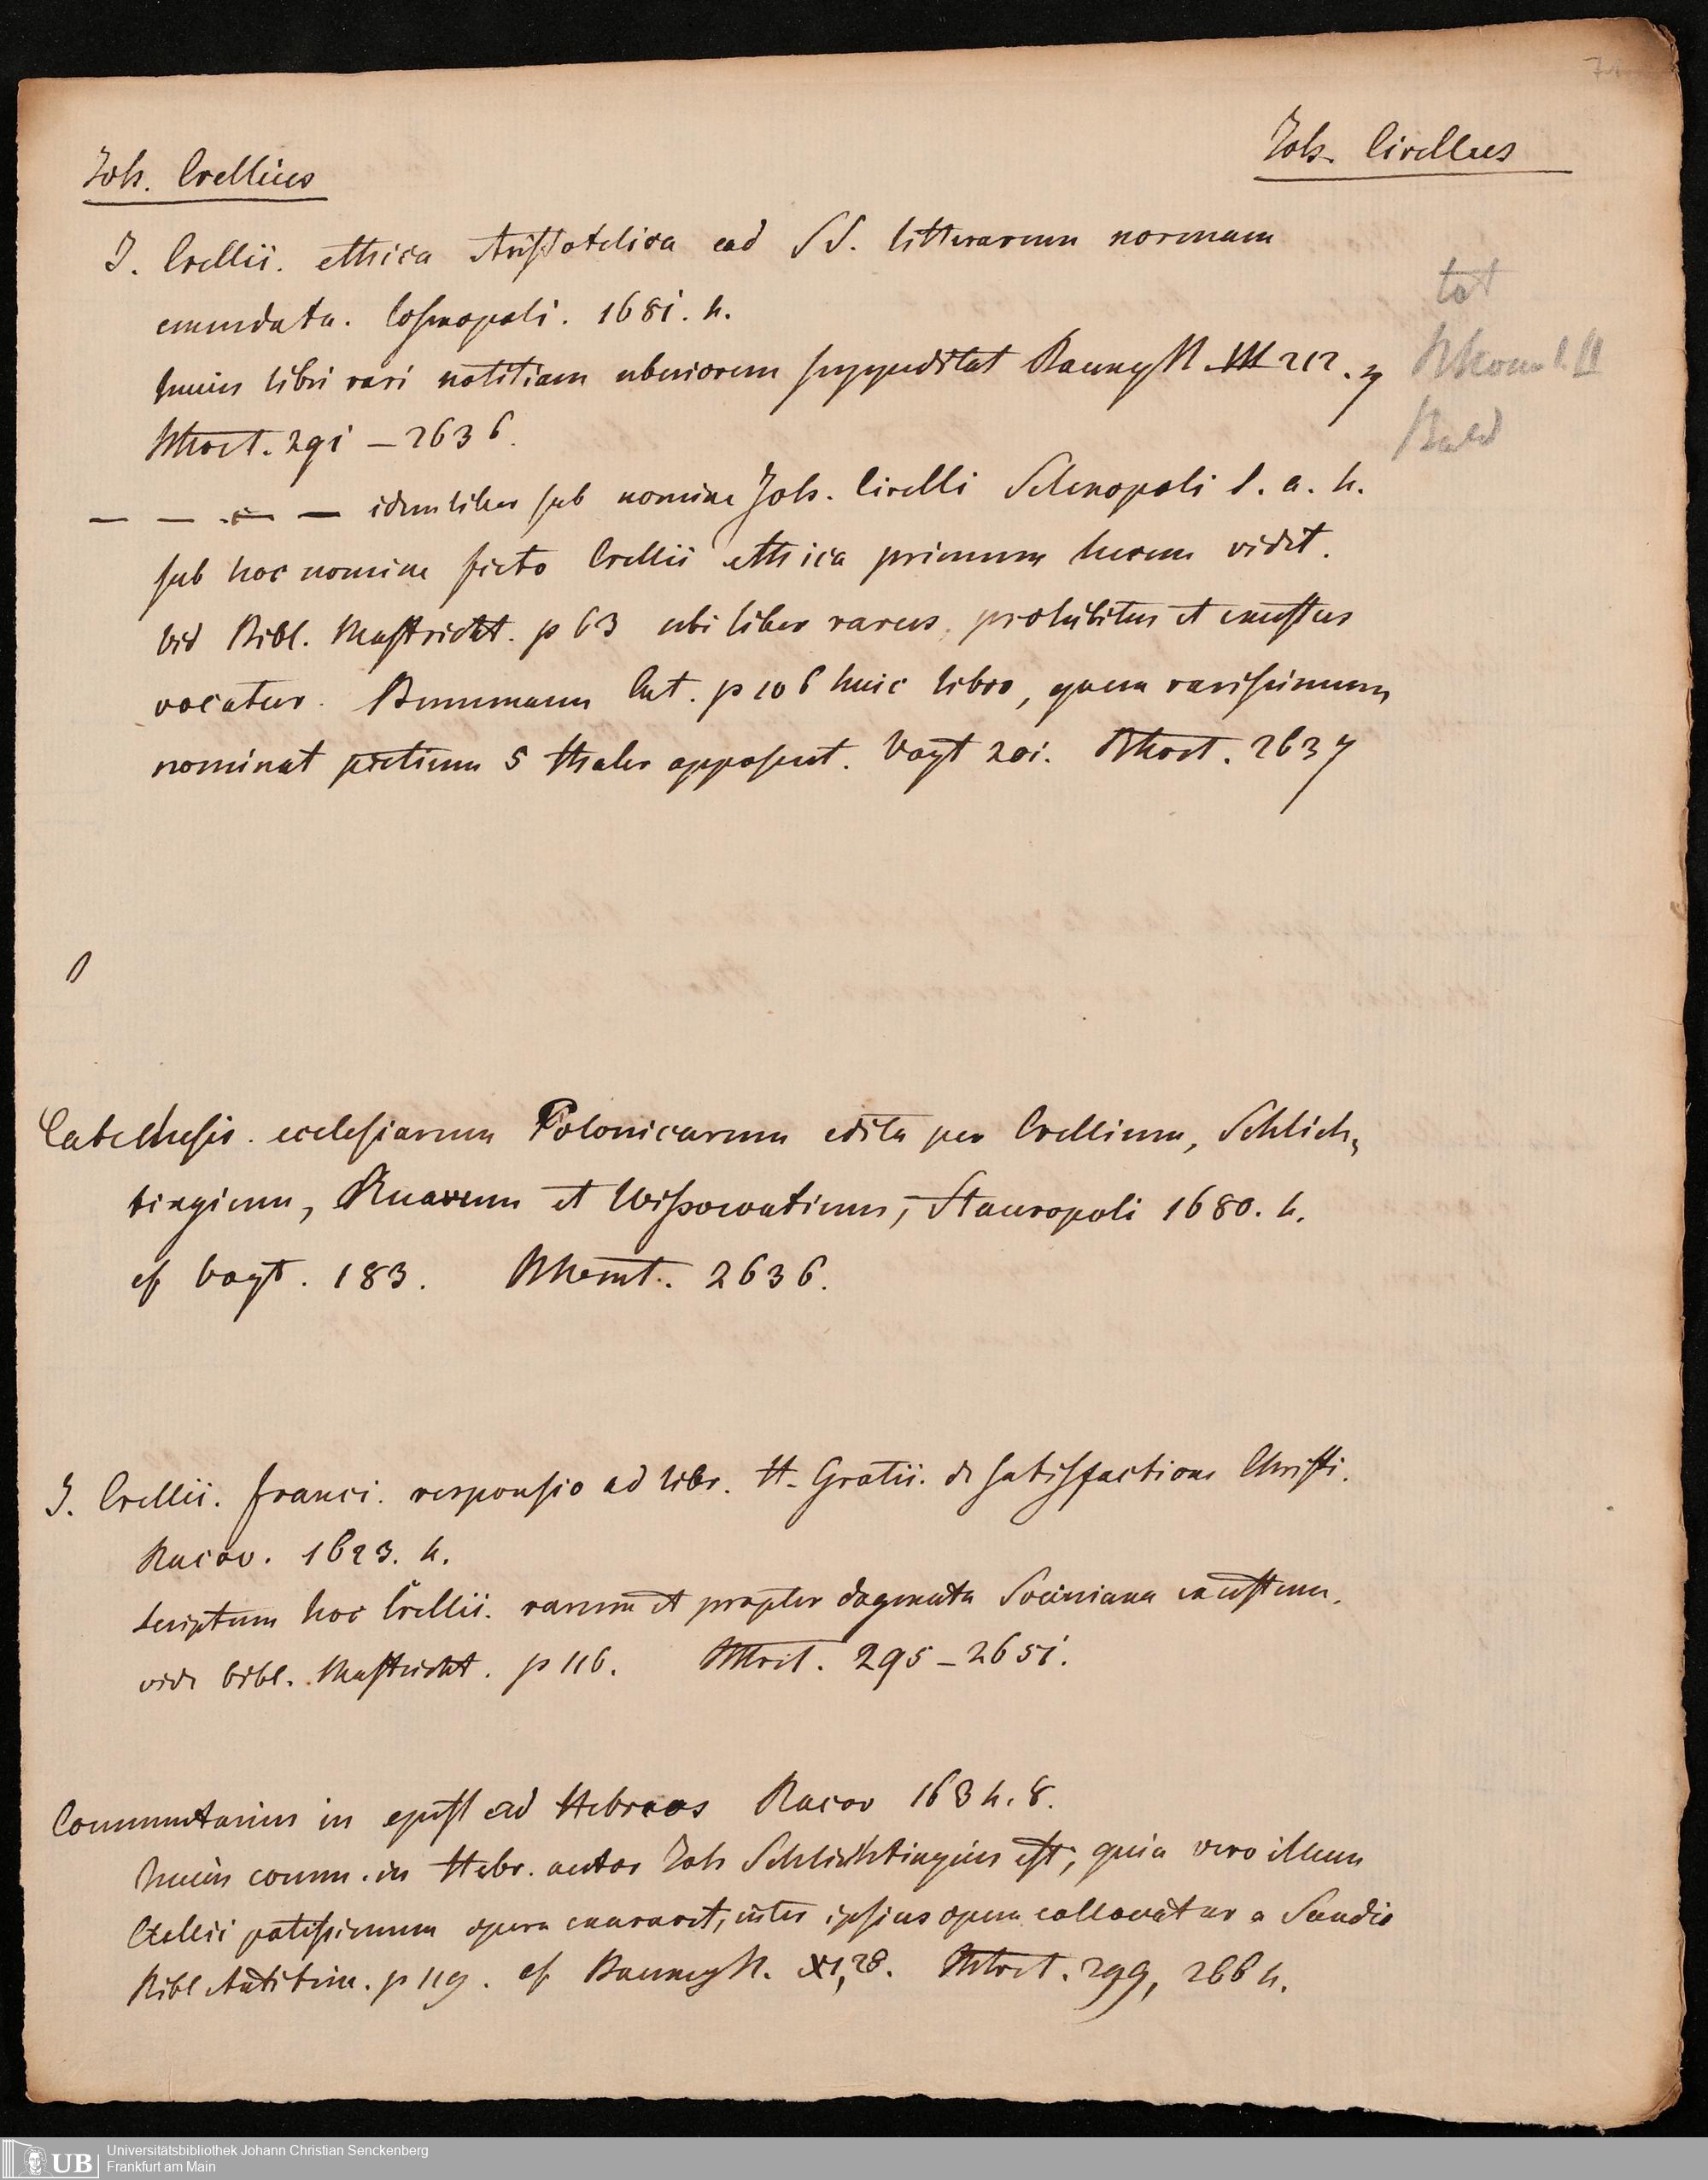 Joh. Crellius
Joh. Cirellus
J. Crellii. ethica Aristotelica ad SS. litterarum normam
emendata. Cosmopoli. 1681. 4.
huius libri rari notitiam uberiorem suppeditat Baumg N. VIII 212.
291 – 2636.
— — — — idem liber sub nomine Joh. Cirelli Selenopoli s. a. 4.
sub hoc nomine ficto Crellii ethica primum lucem vidit.
vid Bibl. Mastricht. p 63 ubi liber rarus, prohibitus et exustus
vocatur. Bunemann Cat. p 106 huic libro, quem rarissimum
nominat pretium 5 thaler apposuit. Vogt 201. 2637
Catechesis. ecclesiarum Polonicarum edita per Crellium, Schlich-
tingium, Ruarum et Wissowatium, Stauropoli 1680. 4.
cf Vogt. 183. 2636.
J. Crellii. Franci. responsio ad libr. H. Grotii. de satisfactione Christi.
Racov. 1623. 4.
scriptum hoc Crellii. rarum et propter dogmata Sociniana exustum.
vide bibl. Mastricht. p 116. 295 – 2651.
Commentarius in epist ad Hebraeos Racov 1634. 8.
huius comm. in Hebr. autor Joh Schlichtingius est, quia vero illum
Crellii potissimum opera curavit, inter ipsius opera collocatur a Sandio
Bibl Antitrin. p 119. cf Baumg N. XI, 28. 299, 2664.
UB
Universitätsbibliothek Johann Christian Senckenberg
Frankfurt am Main